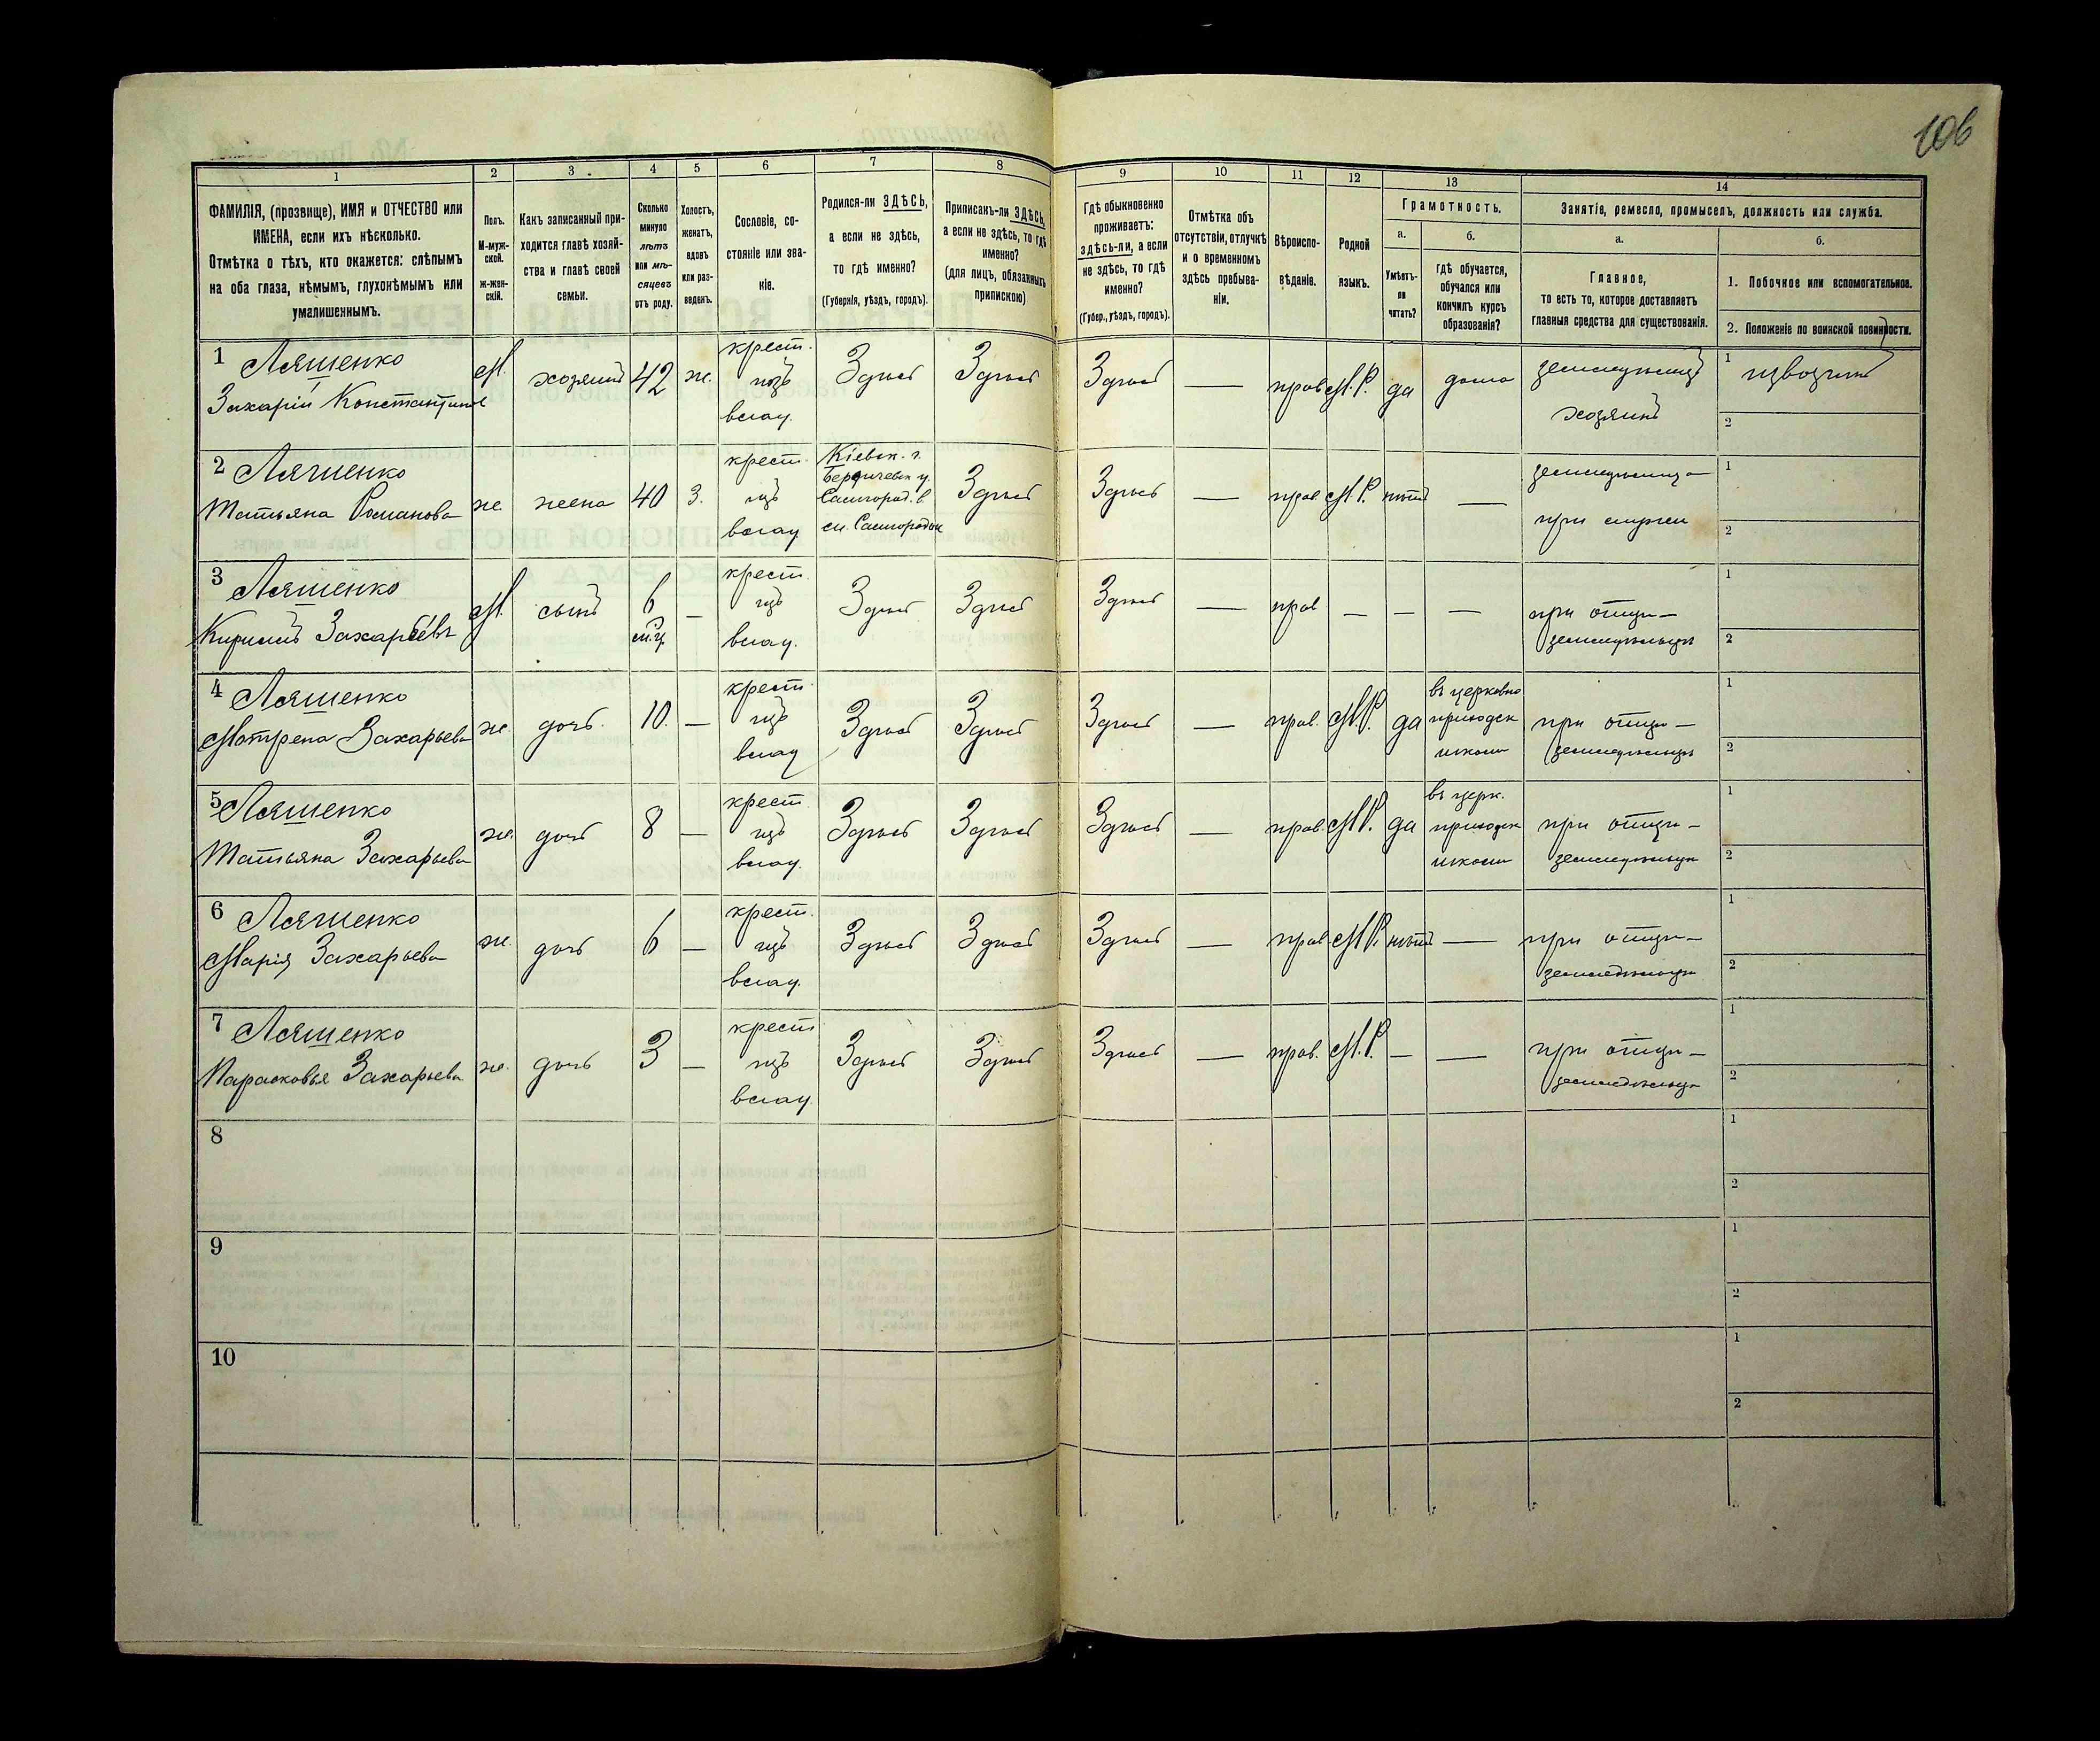 106
1 2 3 4 5 6 7 8 9 10 11 12 13 14
ФАМИЛІЯ, (прозвище), ИМЯ и ОТЧЕСТВО или
ИМЕНА, если ихъ нѣсколько.
Отмѣтка о тѣхъ, кто окажется: слѣпымъ
на оба глаза, нѣмымъ, глухонѣмымъ или
умалишеннымъ.
Полъ.
М-муж-
ской.
ж-жен-
скій.
Какъ записанный при-
ходится главѣ хозяй-
ства и главѣ своей
семьи.
Сколько
минуло
лѣтъ
или мѣ-
сяцевъ
отъ роду.
Холостъ,
женатъ,
вдовъ
или раз-
веденъ.
Сословіе, со-
стояніе или зва-
ніе.
Родился-ли ЗДѢСЬ,
а если не здѣсь,
то гдѣ именно?
(Губернія, уѣздъ, городъ).
Приписанъ-ли ЗДѢСЬ,
а если не здѣсь, то гдѣ
именно?
(для лицъ, обязанныхъ
припискою)
Гдѣ обыкновенно
проживаетъ:
здѣсь-ли, а если
не здѣсь, то гдѣ
именно?
(Губер., уѣздъ, городъ).
Отмѣтка объ
отсутствіи, отлучкѣ
и о временномъ
здѣсь пребыва-
ніи.
Вѣроиспо-
вѣданіе.
Родной
языкъ.
Грамотность.
а.
Умѣетъ-
ли
читать?
б.
гдѣ обучается,
обучался или
кончилъ курсъ
образованія?
Занятіе, ремесло, промыселъ, должность или служба.
а.
Главное,
то есть то, которое доставляетъ
главныя средства для существованія.
б.
1. Побочное или вспомогательное.
2. Положеніе по воинской повинности.
1 Ляшенко
Захарій Константинов
М. хозяинъ 42 ж.
крест.
изъ
влад.
Здѣсь Здѣсь Здѣсь — прав М.Р. да дома
земледѣлецъ
хозяинъ
1 извозчикъ
2
2 Ляшенко
Татьяна Романова
ж. жена 40 з.
крест.
изъ
влад
Кіевск. г.
Бердичевск у.
Самгород. в
м. Самгородок
Здѣсь Здѣсь — прав. М.Р. нѣтъ —
земледѣлица
при мужи
1
2
3 Ляшенко
Кирилъ Захарьевъ
М. сынъ 6 м.ц. —
крест.
изъ
влад.
Здѣсь Здѣсь Здѣсь — прав — — —
при отцѣ —
земледѣльцѣ
1
2
4 Ляшенко
Мотрена Захарьева
ж. дочь. 10. —
крест.
изъ
влад
Здѣсь Здѣсь Здѣсь — прав. М.Р. да
въ церковно
приходск
школѣ
при отцѣ —
земледѣльцѣ
1
2
5 Ляшенко
Татьяна Захарьева
ж. дочь 8 —
крест.
изъ
влад.
Здѣсь Здѣсь Здѣсь — прав. М.Р. да
въ церк.
приходск
школѣ
при отцѣ —
земледѣльцѣ
1
2
6 Ляшенко
Марія Захарьева
ж. дочь 6 —
крест.
изъ
влад.
Здѣсь Здѣсь Здѣсь — прав. М.Р. нѣтъ —
при отцѣ —
земледѣльцѣ
1
2
7 Ляшенко
Парасковья Захарьева
ж. дочь 3 —
крест
изъ
влад.
Здѣсь Здѣсь Здѣсь — прав. М.Р. — —
при отцѣ —
земледѣльцѣ
1
2
8
1
2
9
1
2
10
1
2